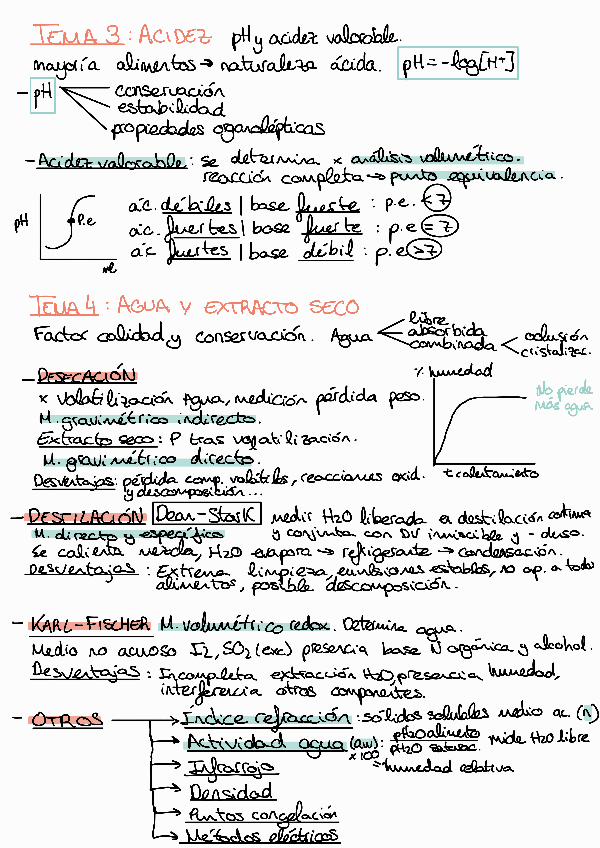 TEMA 3: ACIDEZ pH y acidez valorable.
mayoría alimentos → naturaleza ácida. pH = -log[H+]
- pH
conservación
estabilidad
propiedades organolépticas
- Acidez valorable: se determina x análisis volumétrico.
reacción completa → punto equivalencia.
pH
P.e
ác. débiles | base fuerte : p.e. < 7
ác. fuertes | base fuerte : p.e = 7
ác fuertes | base débil : p.e > 7
TEMA 4: AGUA Y EXTRACTO SECO
Factor calidad y conservación. Agua
libre
absorbida
combinada
oclusión
cristalizac.
- DESECACIÓN
x volatilización Agua, medición pérdida peso.
M. gravimétrico indirecto.
Extracto seco: P tras volatilización.
M. gravimétrico directo.
Desventajas: pérdida comp. volátiles, reacciones oxid.
y descomposición...
% humedad
No pierde
más agua
t calentamiento
- DESTILACIÓN Dean-Stark medir H2O liberada en destilación continua
M. directo y específico y conjunta con DV inmiscible y - denso.
Se calienta mezcla, H2O evapora → refrigerante → condensación.
Desventajas: Extrema limpieza, emulsiones estables, no ap. a todo
alimentos, posible descomposición.
- KARL-FISCHER M. volumétrico redox. Determina agua.
Medio no acuoso I2, SO2 (exc) presencia base N orgánica y alcohol.
Desventajas: Incompleta extracción H2O, presencia humedad,
interferencia otros componentes.
- OTROS → Índice refracción: sólidos solubles medio ac. (n)
→ Actividad agua (aw): pH2O alimento / pH2O saturac. x100 mide H2O libre
= humedad relativa
→ Infrarrojo
→ Densidad
→ Puntos congelación
→ Métodos eléctricos